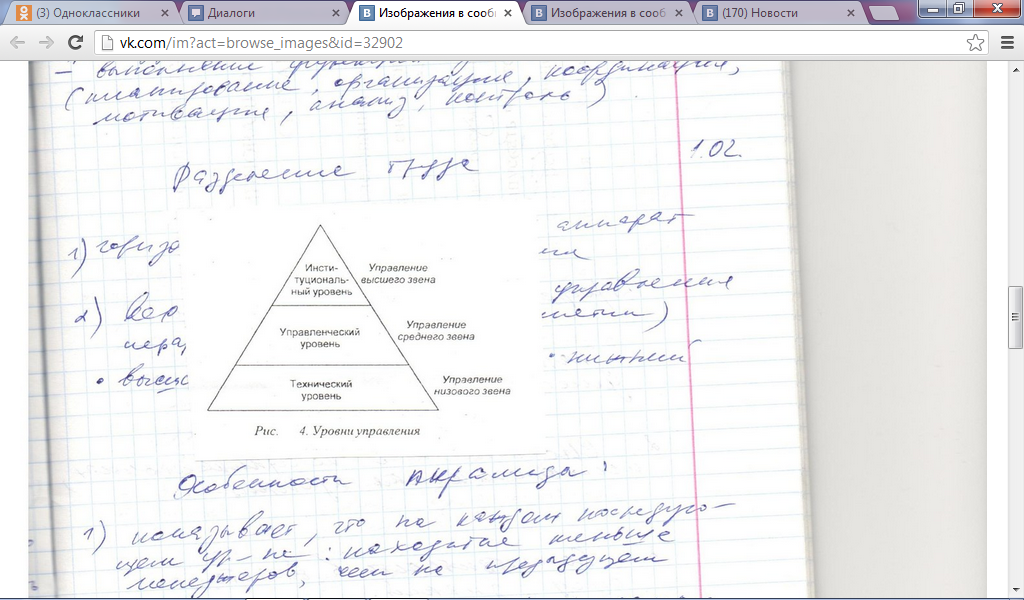 (3) Одноклассники
Диалоги
Изображения в сооб
Изображения в сооб
(170) Новости
vk.com/im?act=browse_images&id=32902
– выполнение функций
(планирование, организация, координация,
мотивация, анализ, контроль)
1.02.
Разделение труда
1) горизо
аппарат
2) вер
управления
иера
• высш
• нижний
Инсти-
туциональ-
ный уровень
Управление
высшего звена
Управленческий
уровень
Управление
среднего звена
Технический
уровень
Управление
низового звена
Рис. 4. Уровни управления
Особенности пирамиды:
1) показывает, что на каждом последую-
щем ур-не находится меньше
менеджеров, чем на предыдущем